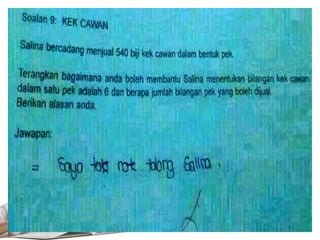 Soalan 9: KEK CAWAN
Salina bercadang menjual 540 biji kek cawan dalam bentuk pek.
Terangkan bagaimana anda boleh membantu Salina menentukan bilangan kek cawan
dalam satu pek adalah 6 dan berapa jumlah bilangan pek yang boleh dijual.
Berikan alasan anda.
Jawapan:
= Saya tak nak tolong Salina.